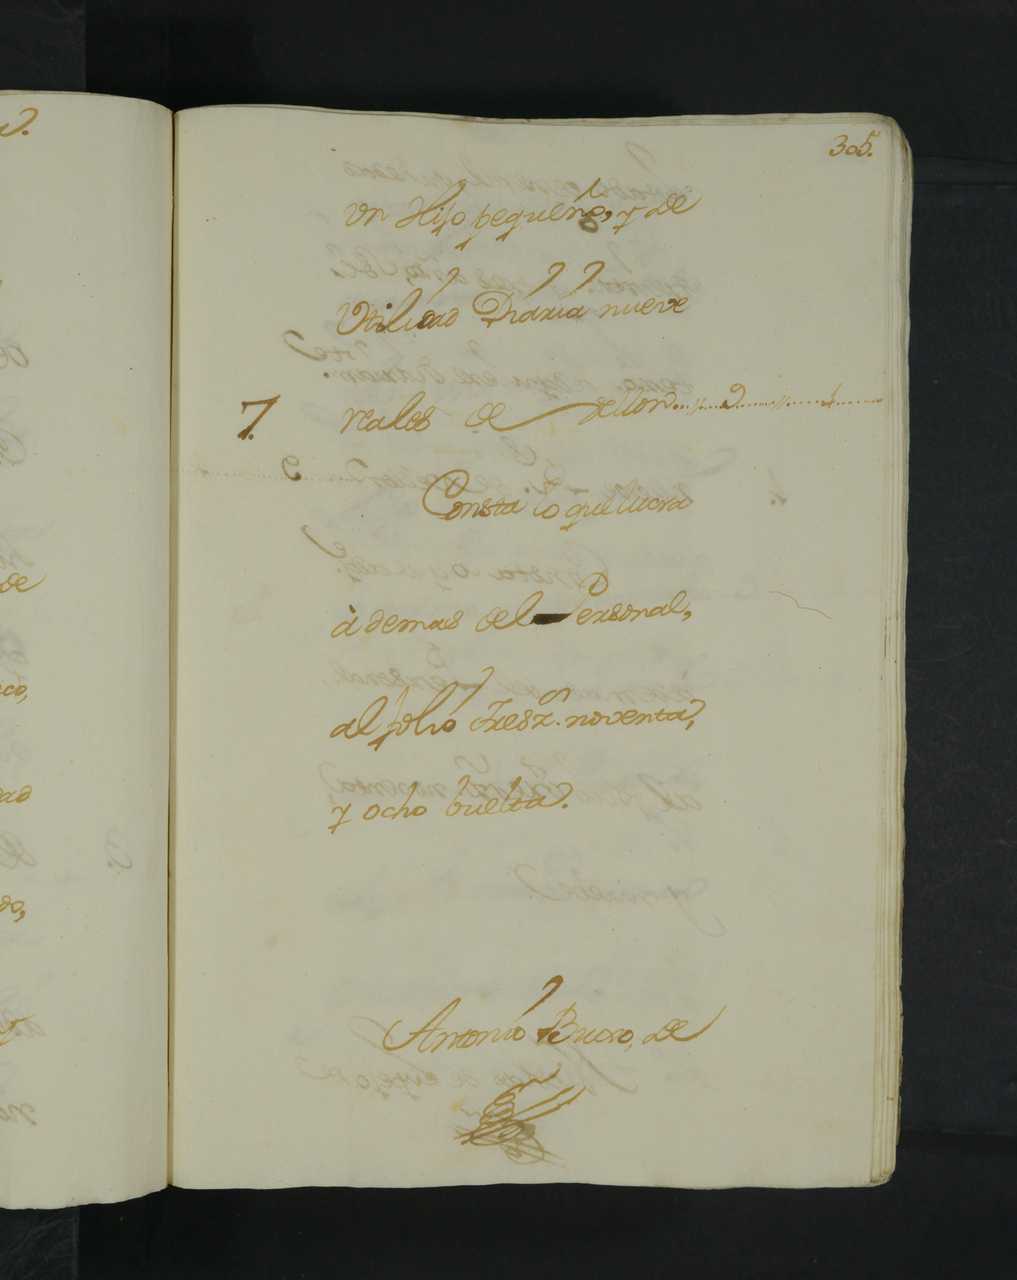 305.
un Hijo pequeño, y de
Utilidad Diaria nueve
7. reales de vellon
Consta lo que lucra
à demas del Personal,
al folio tresz.ⁿ noventa,
y ocho buelta.
Antonio Buoso, de
de
co,
dad
do,
y